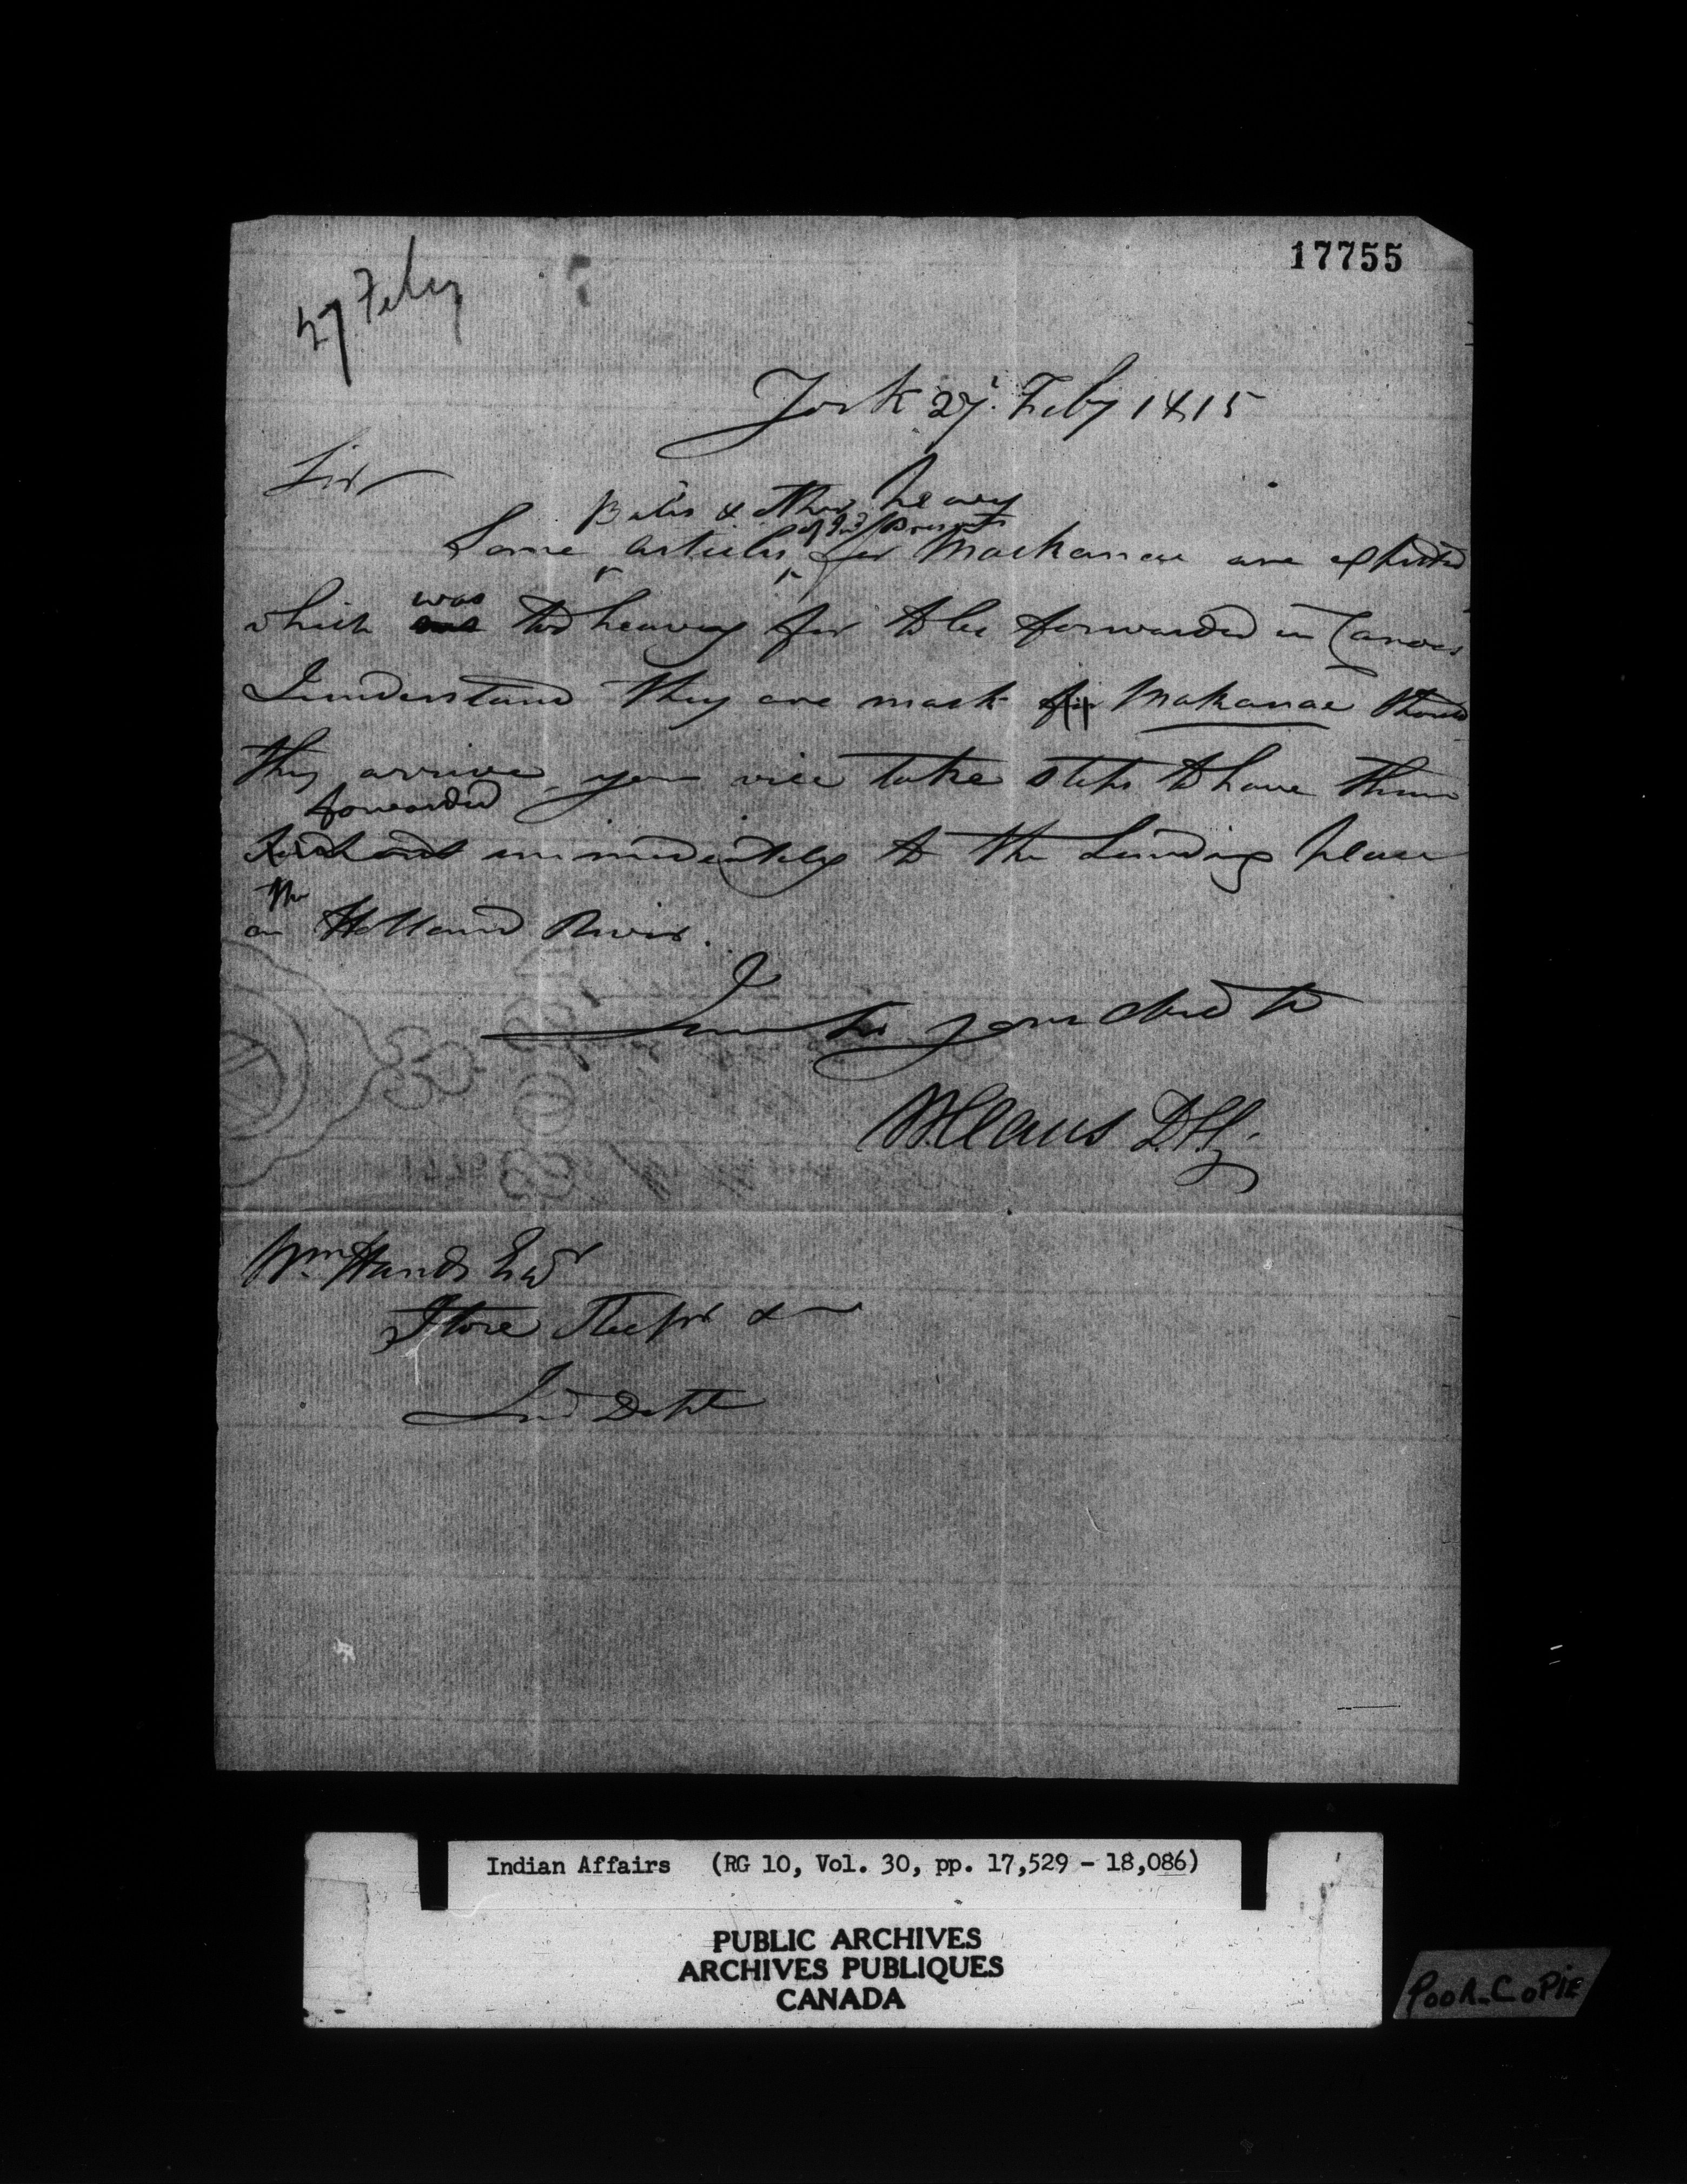 17755
27 Feby
York 27 Feby 1815
Sir
Bales & other heavy
of Ind Presents
Some articles for Mackanac are expected
was
which are too heavy for to be forwarded in Canoes
I understand they are mark for Makanac Should
they arrive you will take steps to have them
forwarded
immediately to the Landing place
the
on Holland River.
I am Sir your obed
W Claus D.S.G.
Wm. Hands Esqr
Store Keeper &
Ind Dept
Indian Affairs (RG 10, Vol. 30, pp. 17,529 - 18,086)
PUBLIC ARCHIVES
ARCHIVES PUBLIQUES
CANADA
POOR COPIE